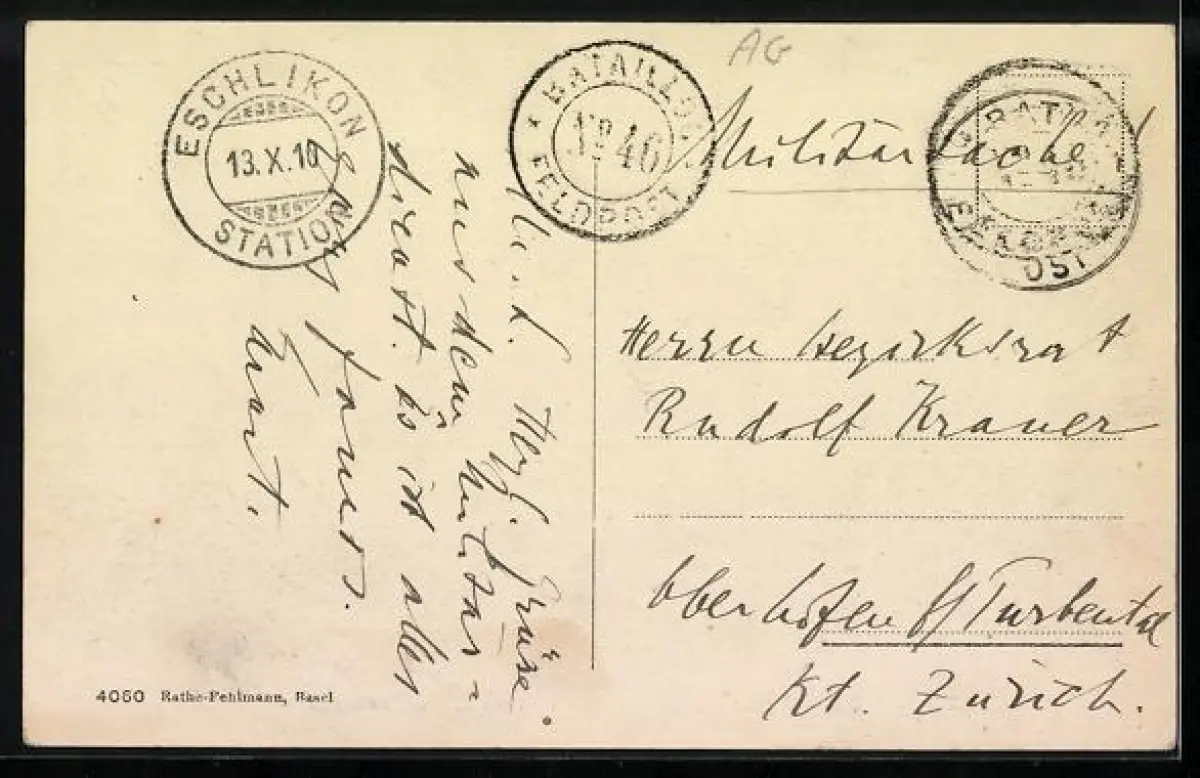 AG
ESCHLIKON
13.X.10
STATION
BATAILLON
No 46
FELDPOST
Militärsache
Herrn Bezirksrat
Rudolf Kramer
Oberhofen b/ Turbental
Kt. Zürich.
Herzl. Grüsse
aus dem Militär-
dienst. Es ist alles
famos.
4060 Rathe-Fehlmann, Basel